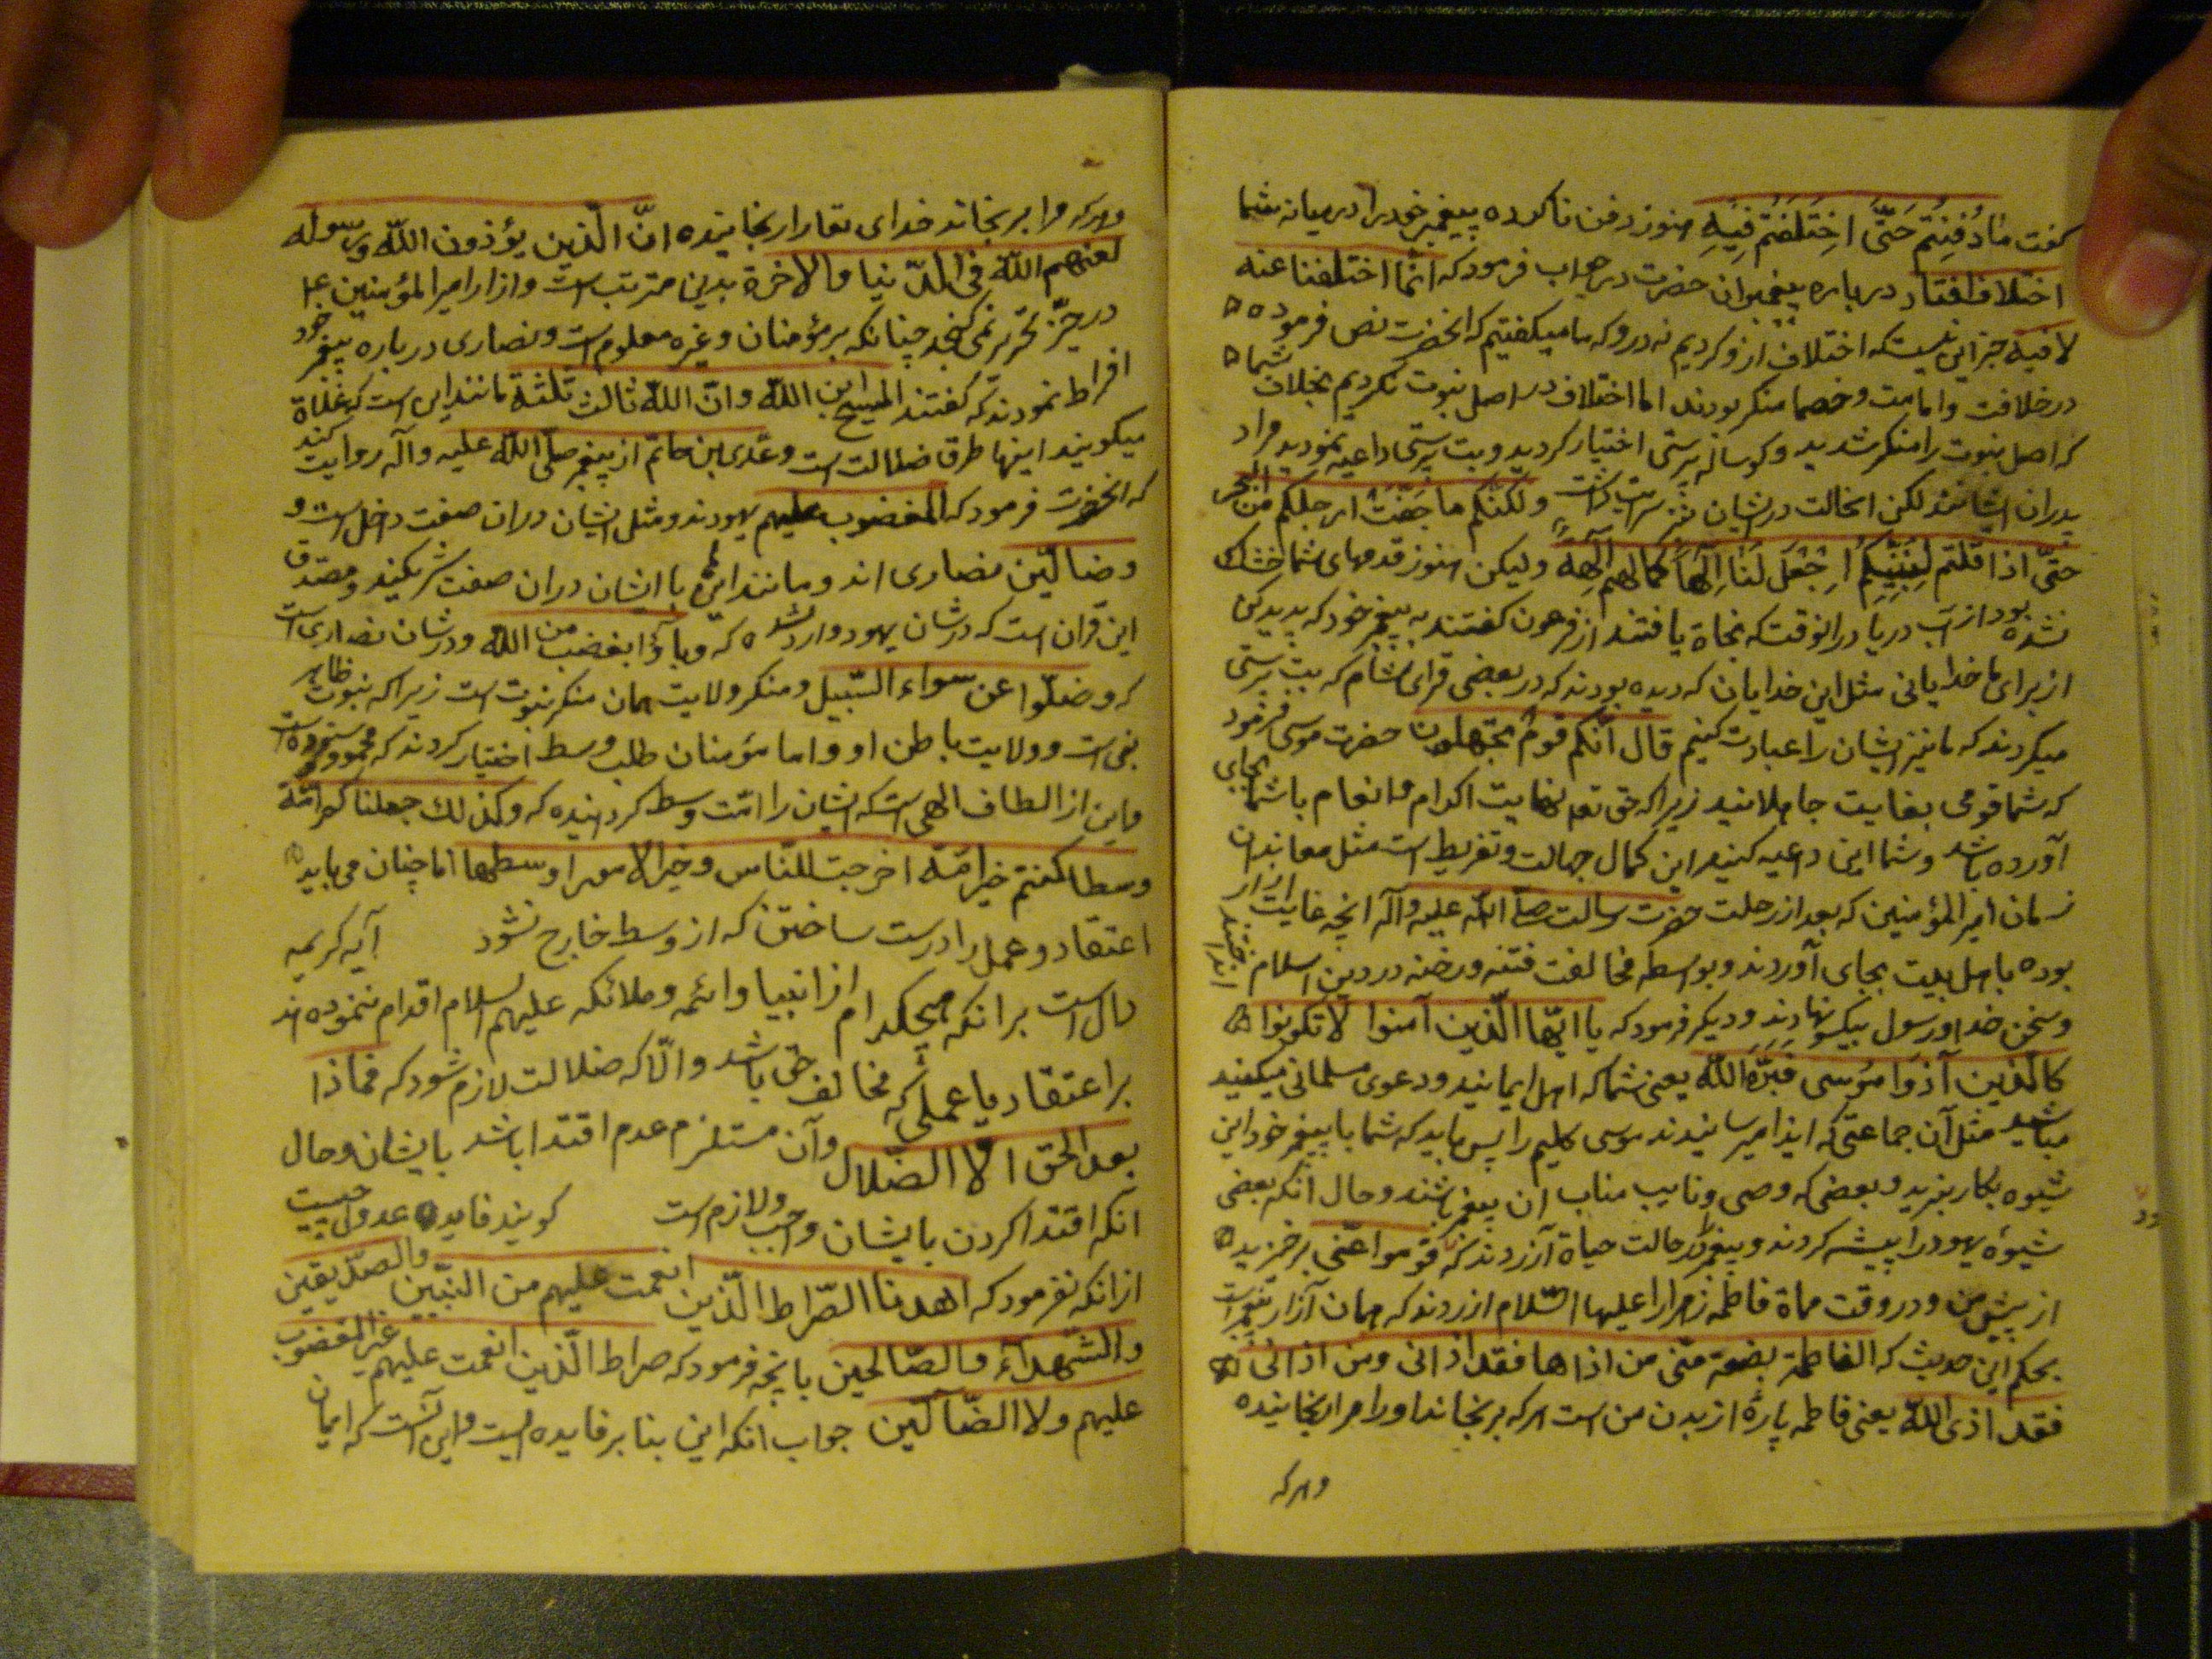 گفت مَا دُفِنتُم حَتَّی اختَلَفتُم فِیهِ هنوز دفن ناکرده پیغمبر خود را در میانه شما
اختلاف افتاد درباره پیغمبر ان حضرت در جواب فرمود که انّما اختلفنا عنه
لا فیه جز این نیست که اختلاف ازو کردیم نه درو که ما میکفتیم که انحضرت نص فرموده
در خلافت و امامت و خصما منکر بودند اما اختلاف در اصل نبوت نکردیم بخلاف شما
که اصل نبوت را منکر شدید و کوساله پرستی اختیار کردید و بت پرستی داعیه نمودید مراد
پدران ایشانند لکن انحالت در ایشان نیز سرایت داشت ولکنکم ما جفّت ارجلکم من البحر
حتّی اذا قلتم لنبیّکم اجعل لنا الها کما لهم الهة ولیکن هنوز قدمهای شما خشک
نشده بود از آب دریا در انوقت که نجاة یافتند از فرعون کفتند به پیغمبر خود که پدید کن
از برای ما خدایانی مثل این خدایان که دیده بودند که در بعضی قرای شام که بت پرستی
میکردند که ما نیز ایشان را عبادت کنیم قال انّکم قوم تجهلون حضرت موسی فرمود
که شما قومی بغایت جاهلانید زیرا که حق تعه نهایت اکرام و انعام با شما بجای
آورده باشد و شما این داعیه کنید این کمال جهالت و تفریط است مثل معاندان
زمان امیر المؤمنین که بعد از رحلت حضرت رسالت صلّی اللّه علیه و آله انچه غایت ازار
بوده باهل بیت بجای آوردند و بواسطه مخالفت فتنه و رخنه در دین اسلام انداختند
و سخن خدا و رسول بیکسو نهادند و دیکر فرمود که یا ایّها الّذین آمنوا لا تکونوا
کالّذین آذوا موسی فبرّه اللّه یعنی شما که اهل ایمانید و دعوی مسلمانی میکنید
مباشید مثل آن جماعتی که ایذا میرسانیدند موسی کلیم را پس باید که شما با پیغمبر خود این
شیوه بکار نبرید و بعضی که وصی و نایب مناب ان پیغمبر باشند و حال انکه بعضی
شیوهٔ یهود را پیشه کردند و پیغمبر را در حالت حیاة آزردند که قوموا عنّی برخیزید
از پیش من و در وقت مماة فاطمه زهرا را علیها السّلام ازردند که همان آزار پیغمبر است
بحکم این حدیث که الفاطمة بضعة منّی من اذاها فقد اذانی و من اذانی
فقد اذی اللّه یعنی فاطمه پارهٔ از بدن من است هر که برنجاند او را مرا رنجانیده
و هر که
و هر که مرا برنجاند خدای تعا را رنجانیده انّ الّذین یؤذون اللّه و رسوله
لعنهم اللّه فی الدّنیا و الاخرة بدین مترتب است و ازار امیر المؤمنین ع
در حیّز تحریر نمی کنجد چنانکه بر مؤمنان و غیره معلوم است و نصاری درباره پیغمبر خود
افراط نمودند که کفتند المسیح ابن اللّه و انّ اللّه ثالث ثلثة مانند این است که غلاة
میکویند اینها طرق ضلالت است و عدی بن حاتم از پیغمبر صلّی اللّه علیه و آله روایت کند
که انحضرت فرمود که المغضوب علیهم یهودند و مثل ایشان در ان صفت داخل است و
و ضالّین نصاری اند و مانند اینها با ایشان در ان صفت شریکند و مصدق
این قران است که در شان یهود وارد شده که و باؤا بغضب من اللّه و در شان نصاری است
که و ضلّوا عن سواء السّبیل و منکر ولایت همان منکر نبوت است زیرا که نبوت ظاهر
نبی است و ولایت باطن او و اما مؤمنان طلب وسط اختیار کردند که محمود و ستوده است
و این از الطاف الهی است که ایشان را امّت وسط کردانیده که و کذلک جعلناکم امّة
وسطا کنتم خیر امّة اخرجت للنّاس و خیر الامور اوسطها اما چنان می باید
اعتقاد و عمل را درست ساختن که از وسط خارج نشود آیه کریمه
دال است بر انکه هیچکدام از انبیا و ائمه و ملائکه علیهم السلام اقدام ننموده اند
بر اعتقاد یا عملی که مخالف حق باشد و الّا که ضلالت لازم شود که فماذا
بعد الحق الا الضّلال و آن مستلزم عدم اقتدا باشد بایشان و حال
انکه اقتدا کردن بایشان واجب و لازم است کویند فایده عدول چیست
از انکه نفرمود که اهدنا الصّراط الّذین انعمت علیهم من النّبیّین والصّدیقین
والشّهداء و الصّالحین بانچه فرمود که صراط الّذین انعمت علیهم غیر المغضوب
علیهم ولا الضّآلّین جواب انکه این بنا بر فایده ایست و این آنست که ایمان